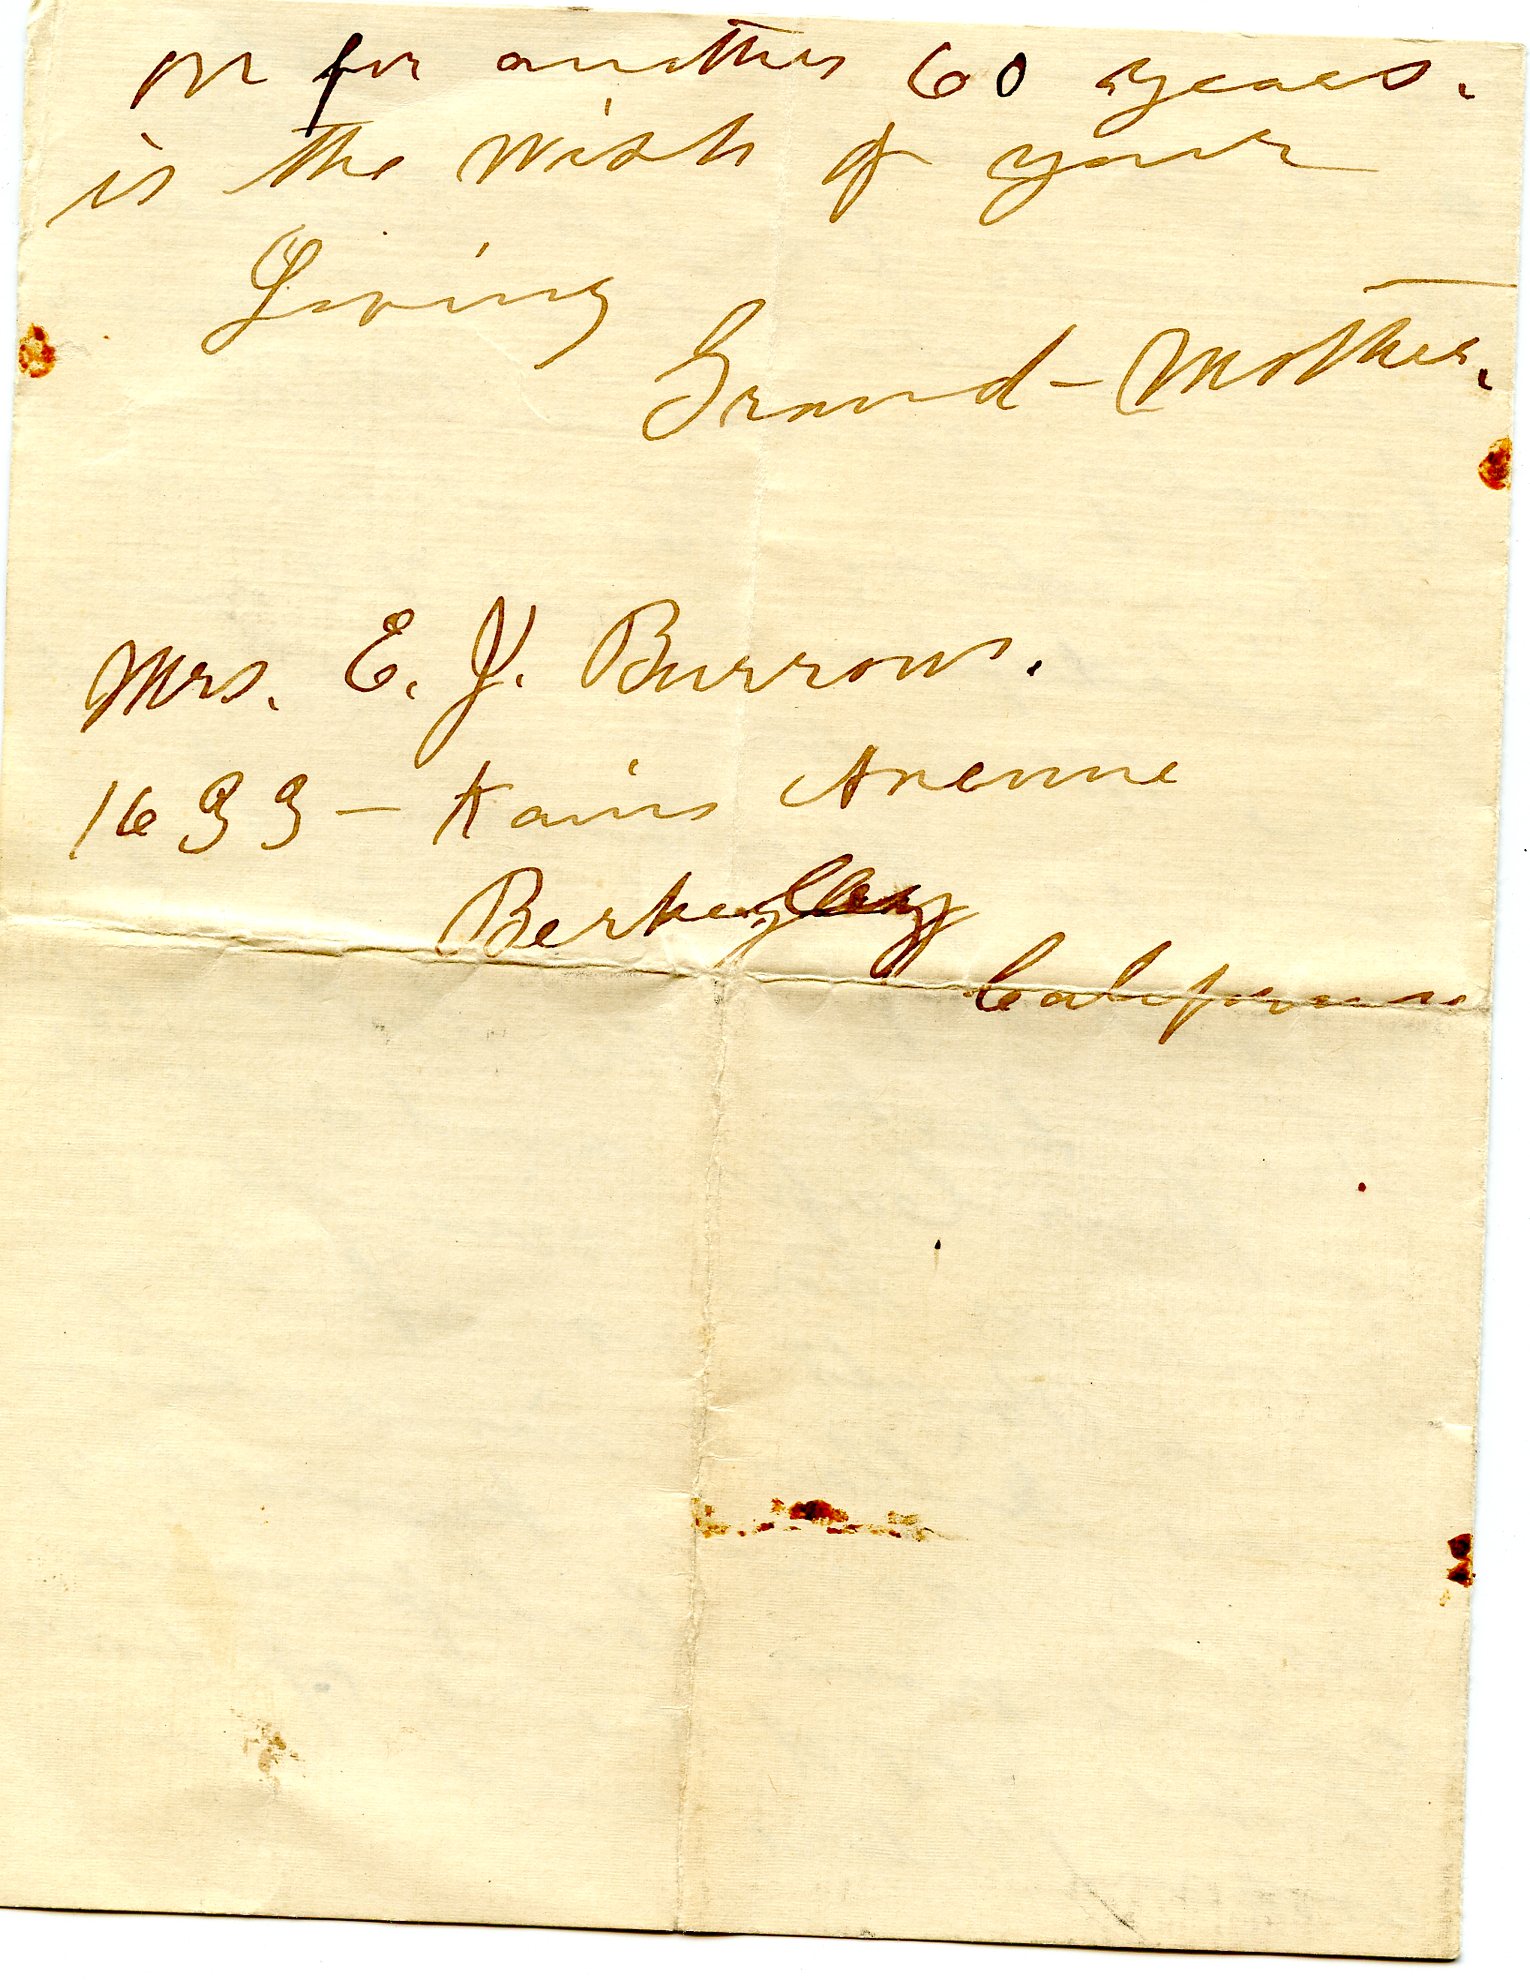 on for another 60 years.
is the wish of your
Loving
Grand-Mother.
Mrs. E. J. Burrows.
1633 - Kains Avenue
Berkeley
California